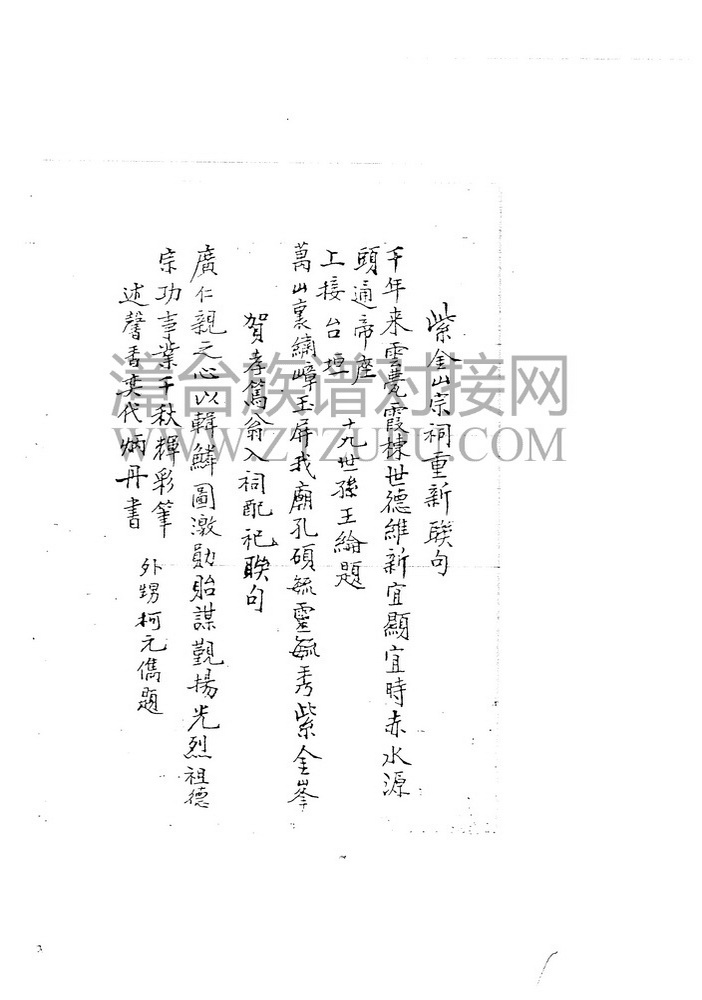 紫金山宗祠重新聯句
千年来雲甍霞棟世德維新宜顯宜時赤水源
頭通帝座
萬山裏繡嶂玉屏我廟孔碩毓靈毓秀紫金峯
上接台垣
十九世孫王綸題
賀孝篤翁入祠配祀聯句
廣仁親之心以輯鱗圖激勛貽謀覲揚光烈祖德
宗功事業千秋輝彩筆
述馨香奕代炳丹書
外甥柯元儁題
漳台族谱对接网
WWW.ZTZUPU.COM